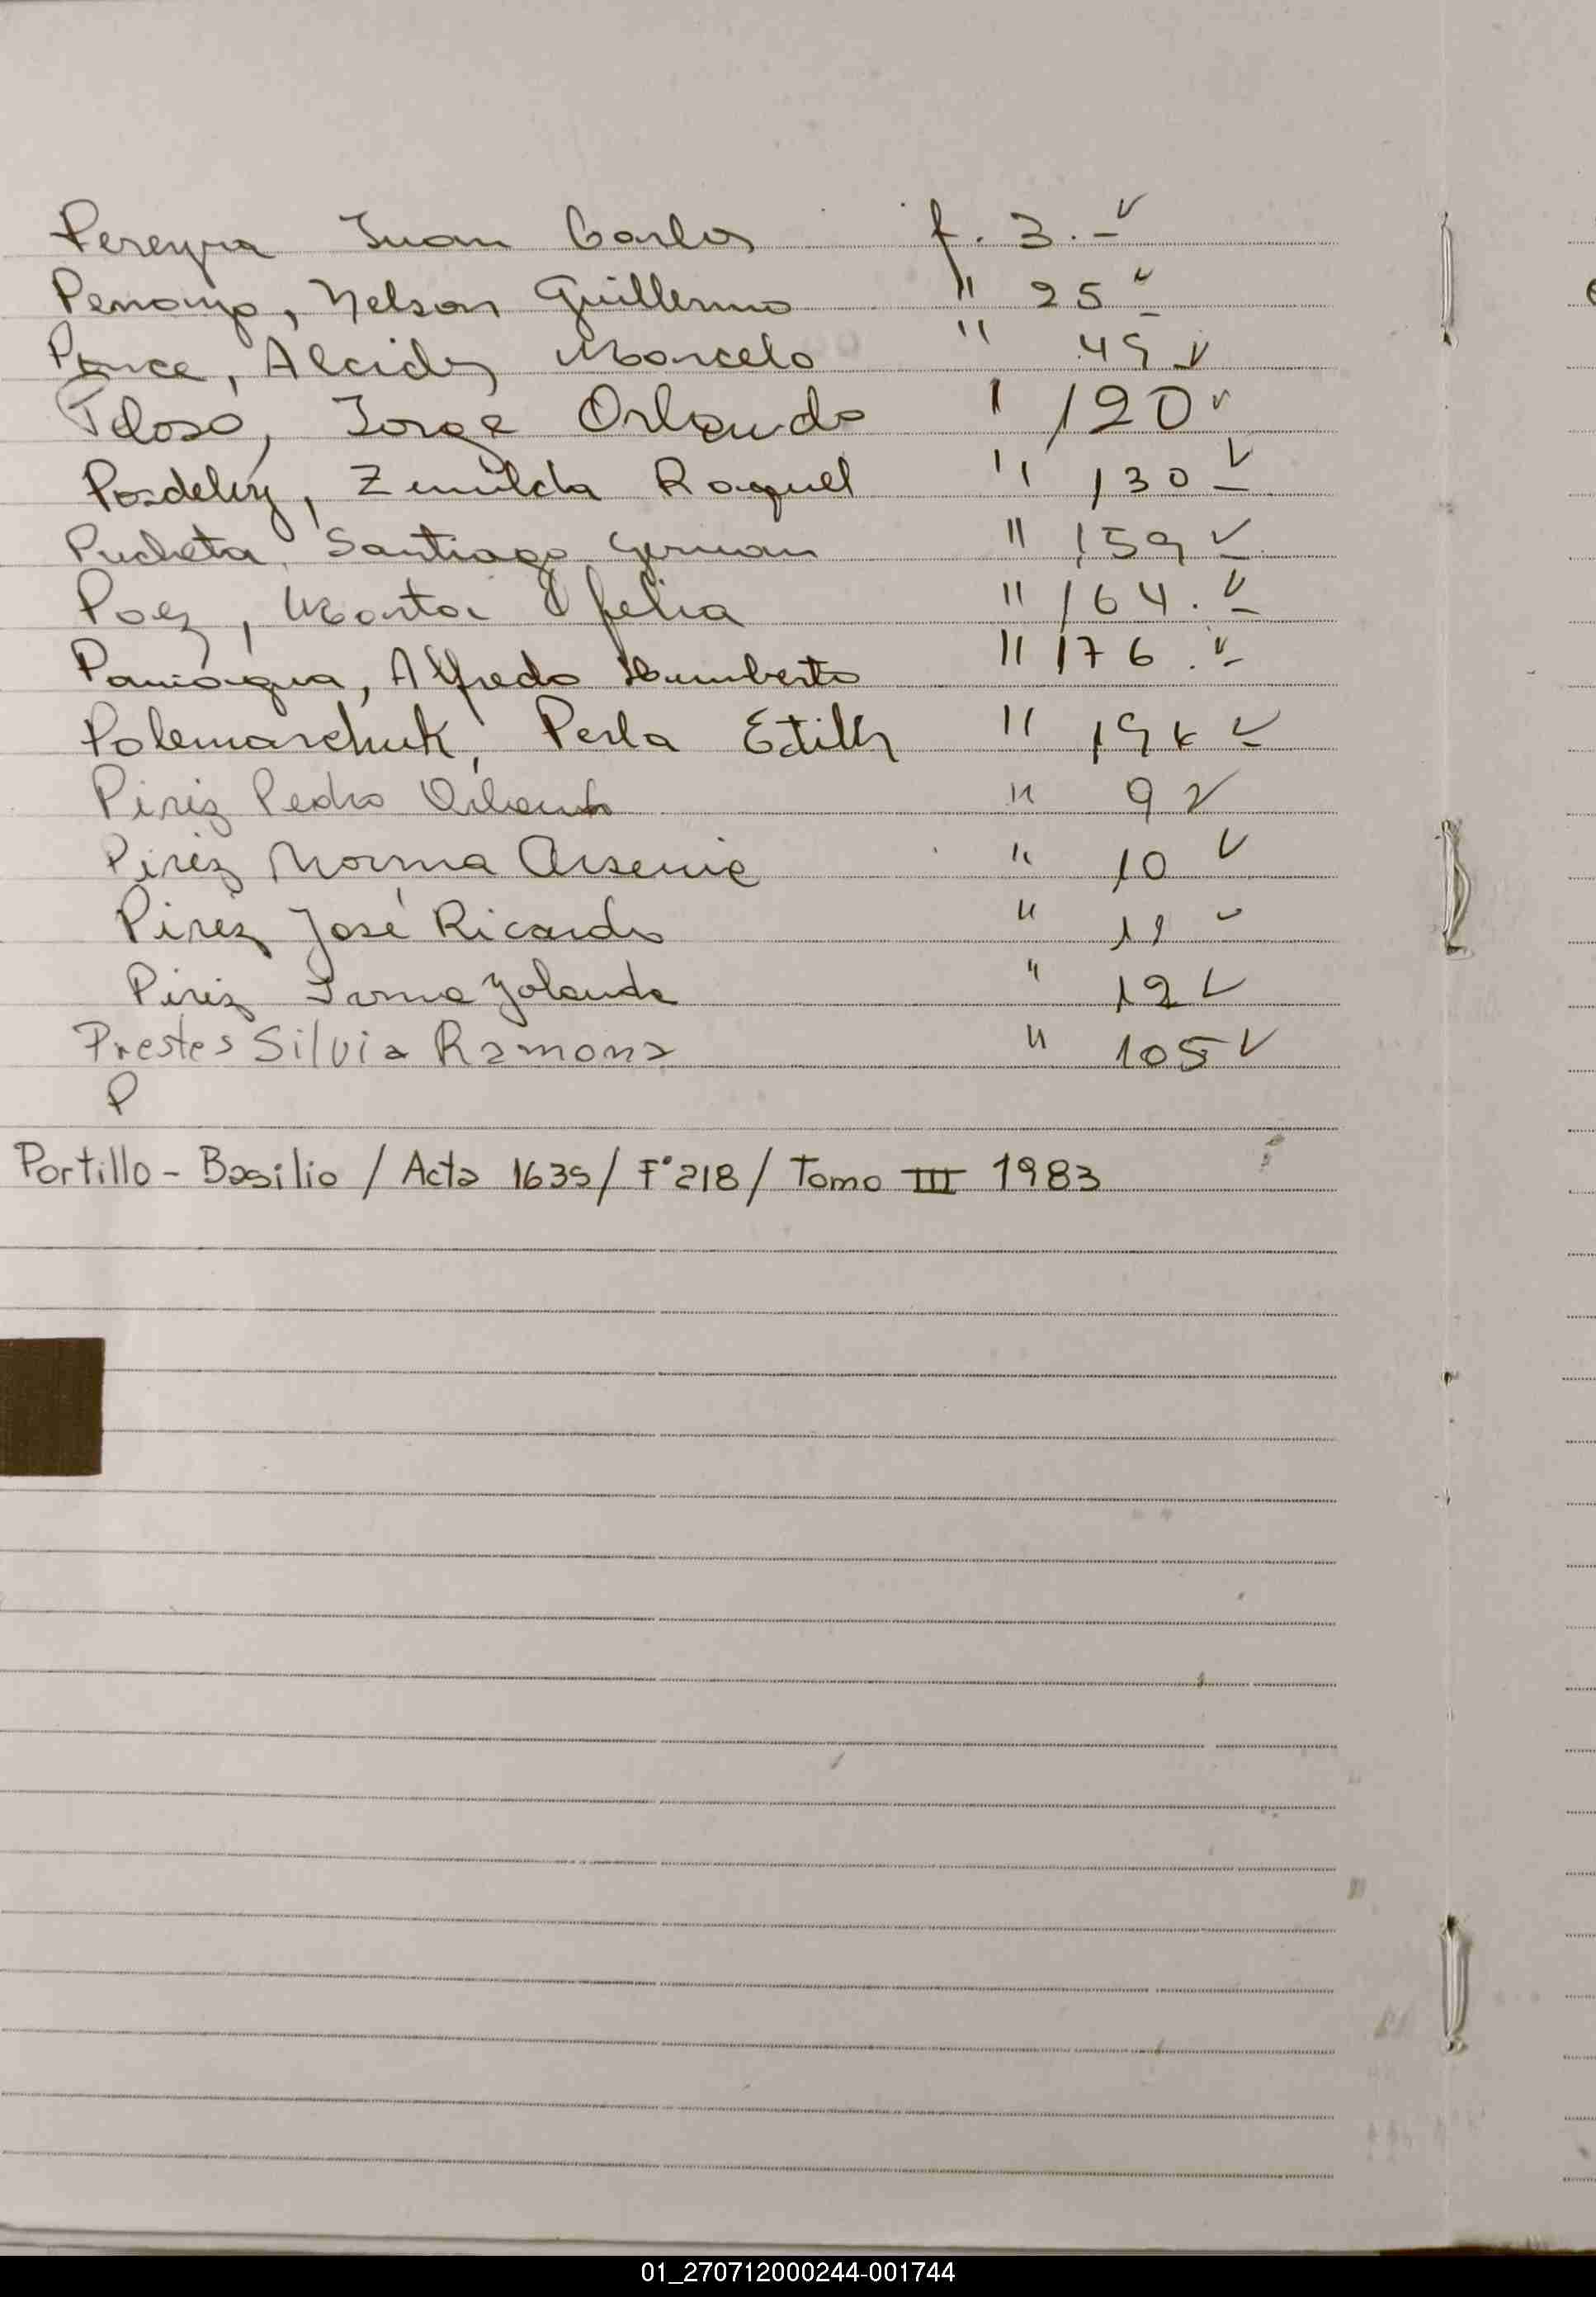 Pereyra Juan Carlos f. 3.- ✓
, Nelson Guillermo " 25 ✓
Ponce, Alcides Marcelo " 49 ✓
Jorge Orlando " 120 ✓
Zunilda Raquel " 130 ✓
Pucheta, Santiago German " 159 ✓
Paez, Marta Ofelia " 164. ✓
Paniagua, Alfredo Humberto " 176. ✓
Polemarchuk, Perla Edith " ✓
Piriz Pedro Orlando " 9 ✓
Pirez Norma Arsenia " 10 ✓
Pirez José Ricardo " 11 ✓
Piriz Irma Yolanda " 12 ✓
Prestes Silvia Ramona " 105 ✓
P
Portillo - Basilio / Acta 1635 / F° 218 / Tomo III 1983
01_270712000244-001744